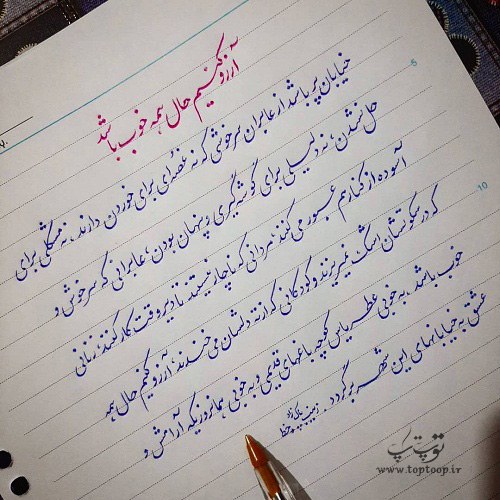 آرزو کنیم حال همه خوب باشد
خیابان پر باشد از عابران سرخوشی که نه غصه‌ای برای خوردن دارند، نه مشکلی برای
حل نشدن، نه دلیلی برای گوشه‌گیری و پنهان بودن، عابرانی که سرخوش و
آسوده از کنار هم عبور می‌کنند. مردانی که ناچار نیستند تا دیر وقت کار کنند، زنانی
که در سکوتشان اشک نمی‌ریزند و کودکانی که از ته دلشان می‌خندند. آرزو کنیم حال همه
خوب باشد. به خوبی عطر یاس کوچه باغهای قدیمی و به خوبی همانروزیکه آرامش و
عشق به خیابانهای این شهر برگردد.
5
10
توپ تاپ
www.toptoop.ir